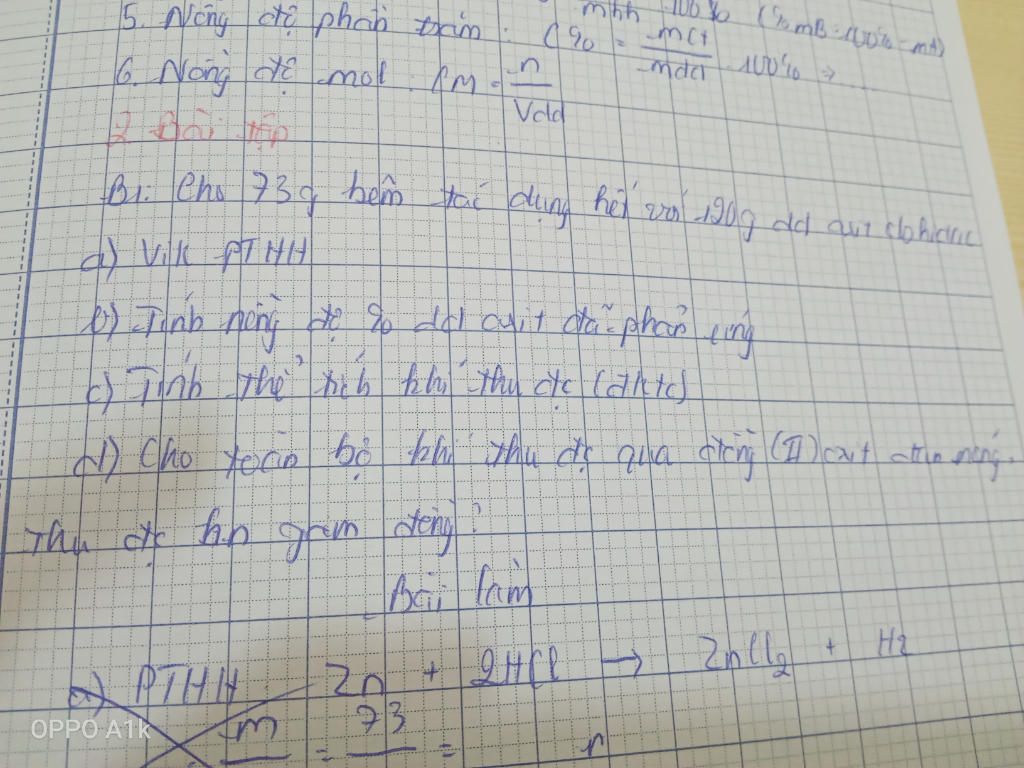 mhh 100% (%mB = 100% - mA)
5. Nồng độ phần trăm: C% = mct/mdd . 100% →...
6. Nồng độ mol: CM = n/Vdd
2. Bài tập
B1. Cho 73g kẽm tác dụng hết với 120g dd axit clohidric
a) Viết PTHH
b) Tính nồng độ % dd axit đã phản ứng
c) Tính thể tích khí thu đc (đktc)
d) Cho toàn bộ khí thu đc qua đồng (II) oxit đun nóng.
Thu đc bn gam đồng?
Bài làm
a) PTHH Zn + 2HCl → ZnCl2 + H2
m = 73 =
n
OPPO A1k